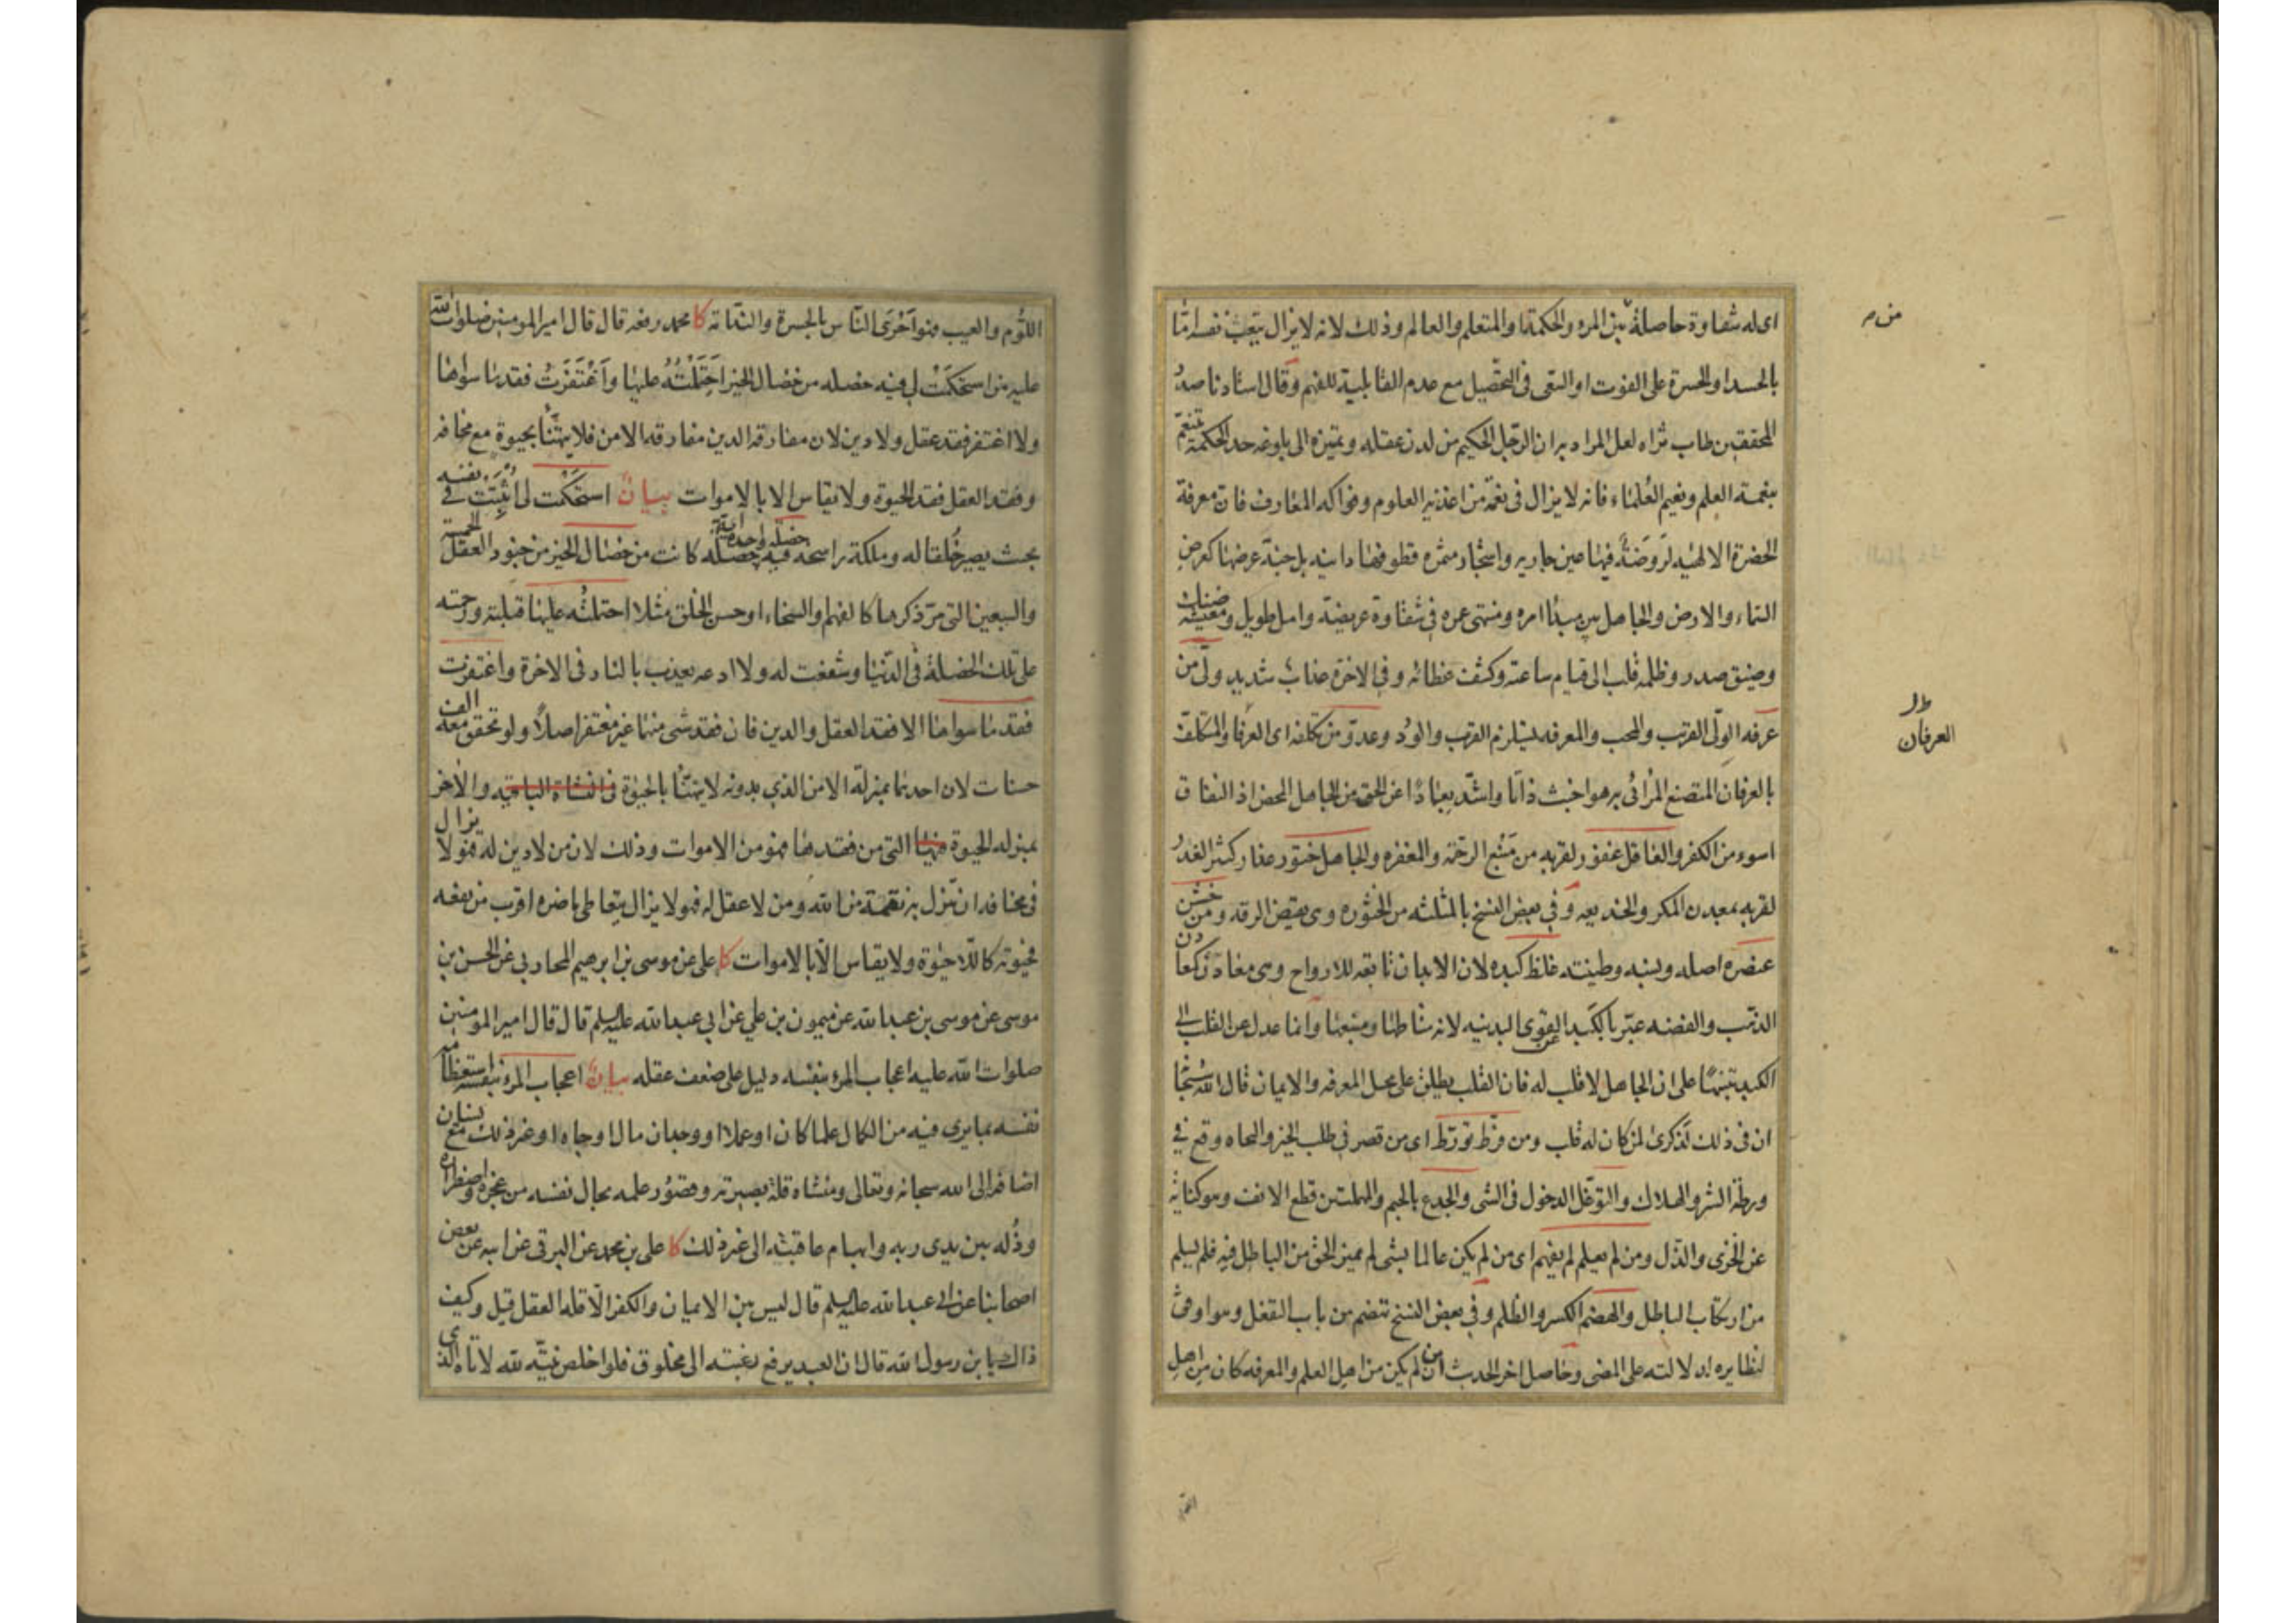 اى له شقاوة حاصلة بين المرء والحكمة او المتعلم والعالم وذلك لانه لا يزال يتعب نفسه اما
من
بالحسد او الحسرة على الفوت او السعى فى التحصيل مع عدم القابلية للفهم وقال استادنا صدر
المحققين طاب ثراه لعل المراد به ان الرجل الحكيم من لدن عقله وتميزه الى بلوغه حد الحكمة متنعم
بنعمة العلم ونعيم العلماء فانه لا يزال فى نعمة من اغذية العلوم وفواكه المعارف فان معرفة
الحضرة الالهيه لروضة فيها عين جاريه واشجار مثمره قطوفها دانيه بل جنة عرضها كعرض
السماء والارض والجاهل بين مبدا امره ومنتهى عمره فى شقاوة عريضة وامل طويل ومعيشة ضنك
وضيق صدر وظلمة قلب الى قيام ساعته وكشف غطائه وفى الاخرة عذاب شديد ولى من
عرفه الولى القريب والمحب والمعرفه يستلزم القرب والود وعدو من تكلفه اى العرفان والمتكلف
العرفان
بالعرفان المتصنع المرائى به هو اخبث ذاتا واشد بعادا عن الحق من الجاهل المحض اذ النفاق
اسوء من الكفر والعاقل غفور لقربه من منبع الرحمة والمغفره والجاهل ختور غدار كثير الغدر
لقربه بمعدن المكر والخديعه وفى بعض النسخ بالمثلثه من الخثوره وهى نقيض الرقه ومن خشن
عنصره اصله ونسبه وطينته غلظ كبده لان الابدان تابعه للارواح وهى معادن كمعادن
الذهب والفضه عبر بالكبد عن القوى البدنيه لانه مشاطها ومنبعها وانما عدل عن القلب الى
الكبد تنبيها على ان الجاهل لا قلب له فان القلب يطلق على محل المعرفه والايمان قال الله سبحانه
ان فى ذلك لذكرى لمن كان له قلب ومن فرط تورط اى من قصر فى طلب الخير والنجاه وقع فى
ورطة الشر والهلاك والتوغل الدخول فى الشى والجدع بالجيم والمهملتين قطع الانف وهو كناية
عن الخزى والذل ومن لم يعلم لم يفهم اى من لم يكن عالما بشى لم يميز الحق من الباطل فيه فلم يسلم
من ارتكاب الباطل والهضم الكسر والظلم وفى بعض النسخ تهضم من باب التفعل وهو اوفق
لنظايره لدلالته على المضى وحاصل اخر الحديث ان من لم يكن من اهل العلم والمعرفه كان من اهل
اللوم والعيب فهو احرى الناس بالحسرة والندامة كا محمد رفعه قال قال امير المومنين صلوات الله
عليه من استحكمت لى فيه خصله من خصال الخير احتملته عليها واغتفرت فقد ما سواها
ولا اغتفر فقد عقل ولا دين لان مفارقه الدين مفارقه الامن فلا يتهنأ بحيوة مع مخافه
وفقد العقل فقد الحيوة ولا يقاس الا بالاموات بيان استحكمت لى اثبتت فى نفسه
بحيث يصير خلقا له وملكة راسخه فيه خصله كانت من خصال الخير من جنود العقل الخمسة
والسبعين التى مر ذكرها كالفهم والسخاء او حسن الخلق مثلا احتملته عليها قبلته ورحمته
على تلك الخصلة فى الدنيا وشفعت له ولا ادعه يعذب بالنار فى الاخرة واغتفرت
فقد ما سواها الا فقد العقل والدين فان فقد شى منهما غير مغتفر اصلا ولو تحقق معه الف
حسنات لان احدهما بمنزلة الامن الذى بدونه لا يتهنأ بالحيوة فى النشاة الباقيه والاخر
بمنزله الحيوة فيها التى من فقدها فهو من الاموات وذلك لان من لا دين له فهو لا يزال
فى مخافه ان تنزل به نقمة من الله ومن لا عقل له فهو لا يزال يتعاطى ما ضره اقرب من نفعه
فحيوته كاللاحيوة ولا يقاس الا بالاموات كا على عن موسى بن ابرهيم المحاربى عن الحسن بن
موسى عن موسى بن عبد الله عن ميمون بن على عن ابى عبد الله عليه السلم قال قال امير المومنين
صلوات الله عليه اعجاب المرء بنفسه دليل على ضعف عقله بيان اعجاب المرء بنفسه استعظامه
نفسه بما يرى فيه من الكمال علما كان او عملا او وجدان مال او جاه او غير ذلك مع نسيان
اضافه الى الله سبحانه وتعالى ومنشاه قلة بصيرته وقصور علمه بحال نفسه من عجزه واضطراره
وذله بين يدى ربه وابهام عاقبته الى غير ذلك كا على بن محمد عن البرقى عن ابيه عن بعض
اصحابنا عن ابى عبد الله عليه السلم قال ليس بين الايمان والكفر الا قله العقل قيل وكيف
ذاك يا بن رسول الله قال ان العبد يرفع رغبته الى مخلوق فلو اخلص نيته لله لاتاه الذى